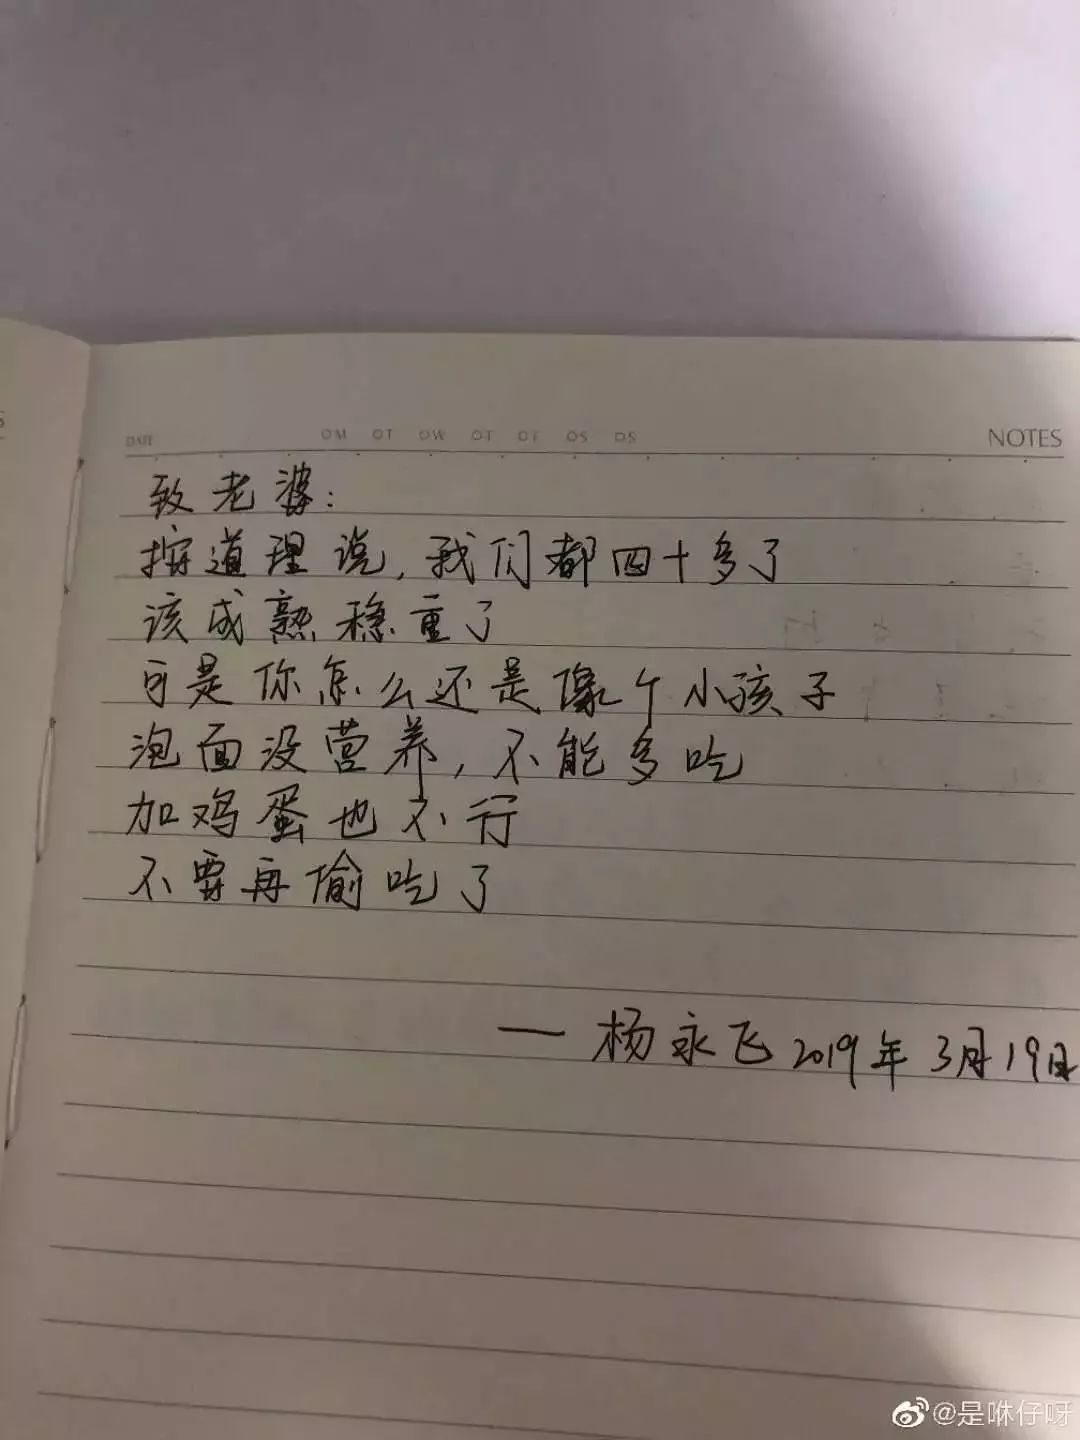 DATE OM OT OW OT OF OS OS NOTES
致老婆：
按道理说，我们都四十多了
该成熟稳重了
可是你怎么还是像个小孩子
泡面没营养，不能多吃
加鸡蛋也不行
不要再偷吃了
—杨永飞 2019年3月19日
@是咻仔呀